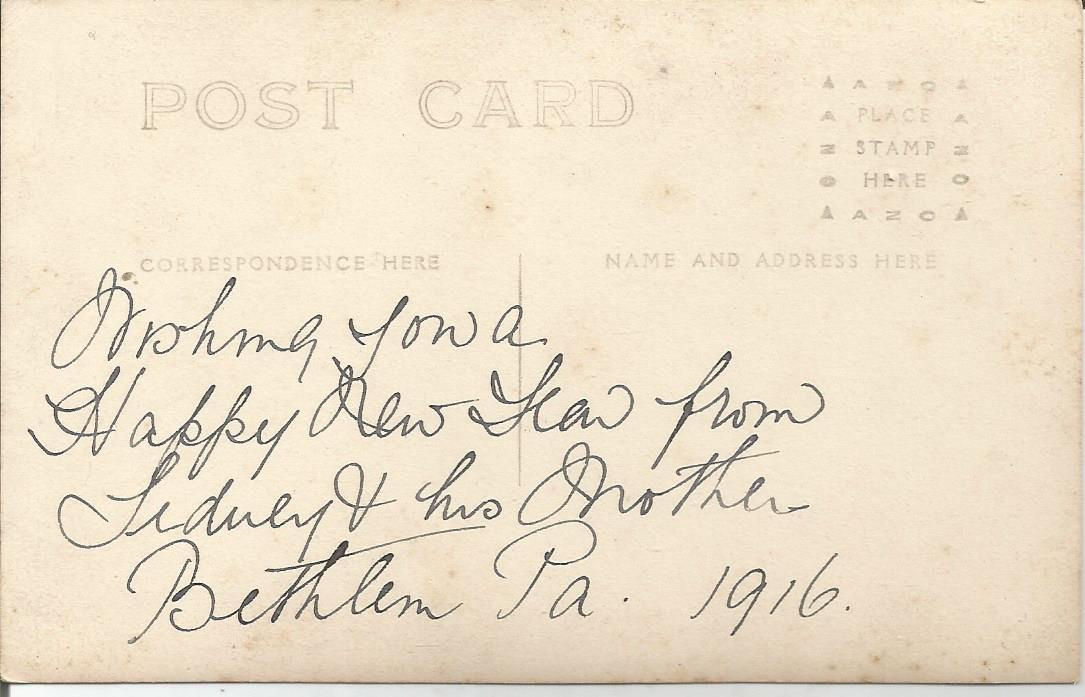 POST CARD
▲ A Z O ▲
A PLACE A
Z STAMP Z
O HERE O
▲ A Z O ▲
CORRESPONDENCE HERE
NAME AND ADDRESS HERE
Wishing you a
Happy New Year from
Sidney & his Mother
Bethlem Pa. 1916.